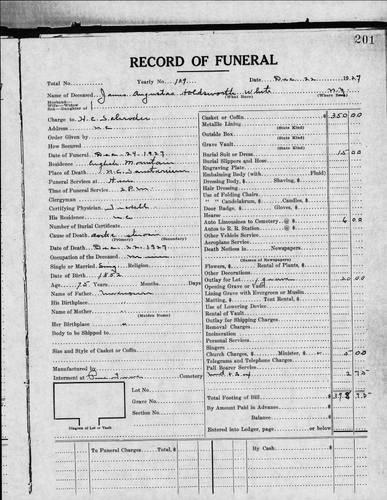 201
RECORD OF FUNERAL
Total No. Yearly No. 129 Date Dec 22 1927
Name of Deceased James Augustus Holdsworth White
(What Born) (Where Born)
Husband
Wife—Widow
Son—Daughter of
Charge to H. C. Schroder
Address N.C.
Order Given by
How Secured
Date of Funeral Dec 24. 1927
Residence English Mountain
Place of Death N.C. Sanitarium
Funeral Services at
Time of Funeral Service 2 P.M.
Clergyman
Certifying Physician
His Residence N.C.
Number of Burial Certificate
Cause of Death
(Primary) (Secondary)
Date of Death Dec. 22. 1927
Occupation of the Deceased
Single or Married Religion
Date of Birth 1852
Age 75 Years Months Days
Name of Father Unknown
His Birthplace "
Name of Mother "
(Maiden Name)
Her Birthplace "
Body to be Shipped to
Size and Style of Casket or Coffin
Manufactured by
Interment at Pine Grove Cemetery
Lot No.
Grave No.
Section No.
Diagram of Lot or Vault
Casket or Coffin $ 350 00
Metallic Lining
(State Kind)
Outside Box
(State Kind)
Grave Vault
(State Kind)
Burial Suit or Dress 15 00
Burial Slippers and Hose
Engraving Plate
Embalming Body (with Fluid)
Dressing Body, $ Shaving, $
Hair Dressing
Use of Folding Chairs
" " Candelabrum, $ Candles, $
Door Badge, $ Gloves, $
Hearse
Auto Limousines to Cemetery @ $ 6 00
Autos to R. R. Station @ $
Other Vehicle Service
Aeroplane Service
Death Notices in Newspapers
(Names of Newspapers)
Flowers, $ Rental of Plants, $
Other Decorations
Outlay for Lot 1 grave 20 00
Opening Grave or Vault
Lining Grave with Evergreen or Muslin
Matting, $ Tent Rental, $
Use of Lowering Device
Rental of Vault
Outlay for Shipping Charges
Removal Charges
Incineration
Personal Services
Singers
Church Charges, $ Minister, $ 5 00
Telegrams and Telephone Charges
Pall Bearer Service
2 75
Total Footing of Bill $ 398 75
By Amount Paid in Advance $
Balance $
Entered into Ledger, page or below
To Funeral Charges, Total $
By Cash $